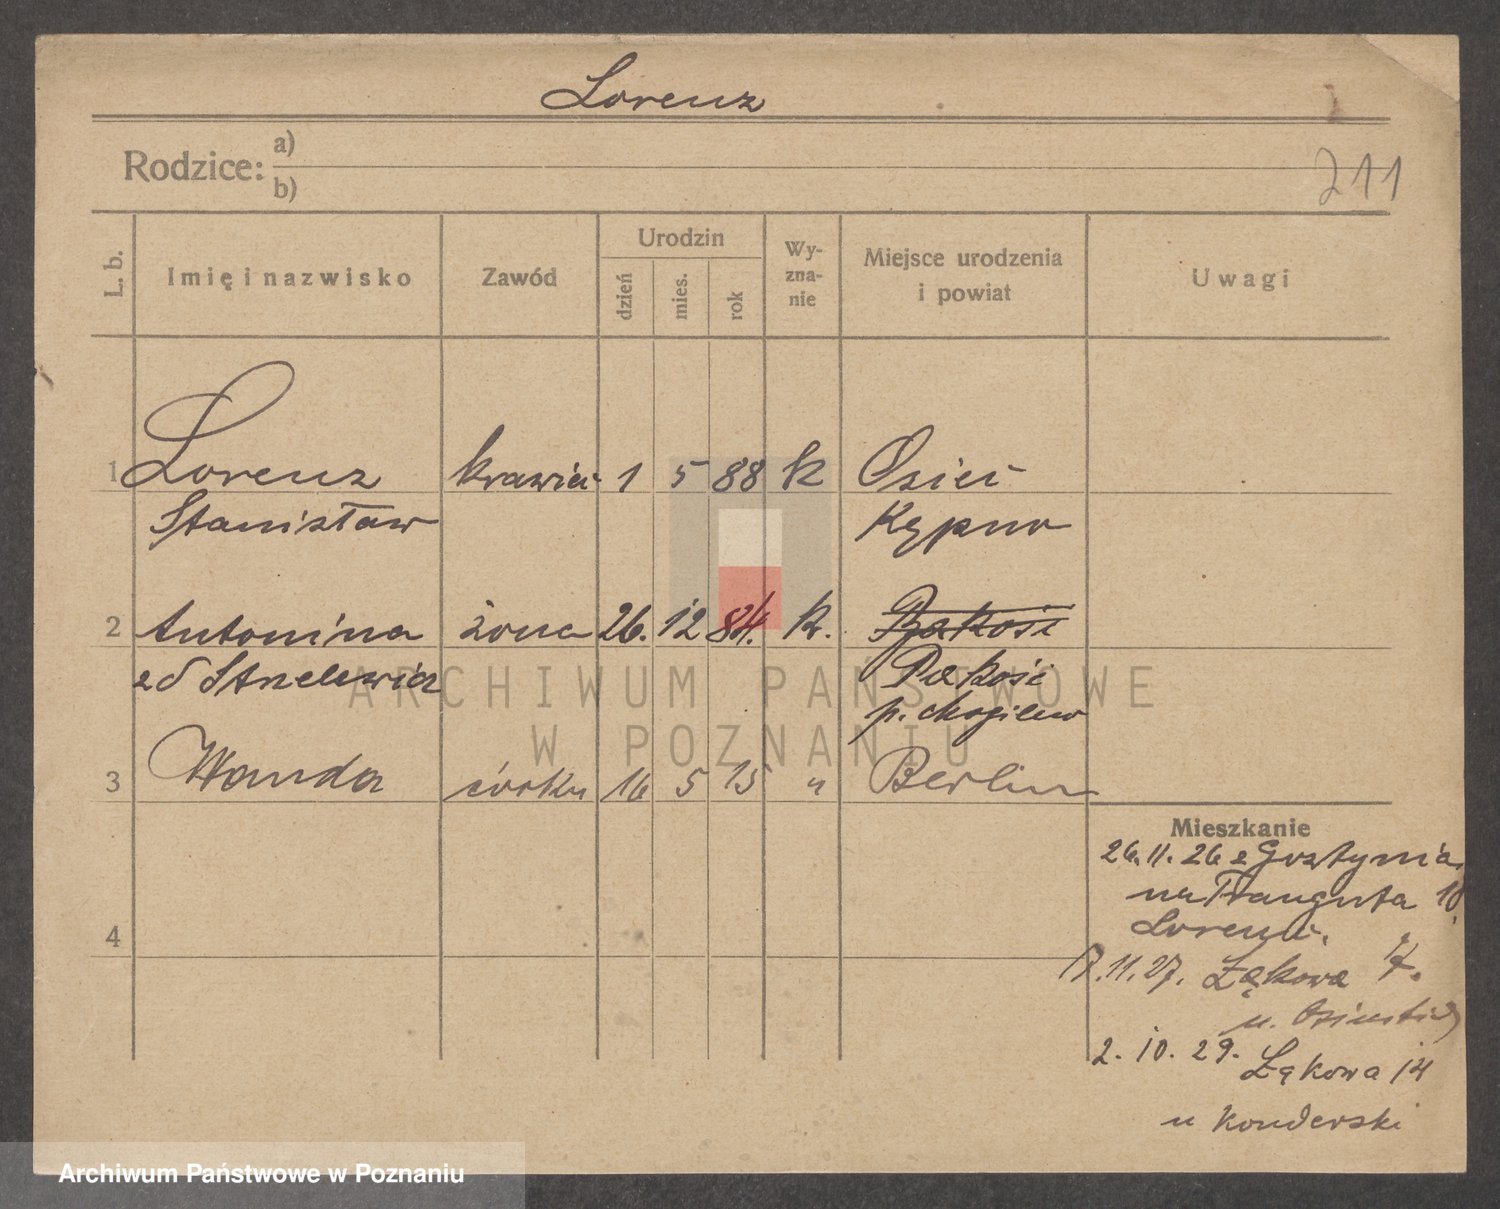 Lorenz
Rodzice: a)
b)
211
L. b.
Imię i nazwisko
Zawód
Urodzin
dzień
mies.
rok
Wy-
zna-
nie
Miejsce urodzenia
i powiat
Uwagi
1 Lorenz krawiec 1 5 88 k Osieć
Stanisław Kępno
2 Antonina żona 26. 12 84. k. Pakość
zd Strzelewicz Pakość
p. Mogilno
3 Wanda córka 16 5 15 " Berlin
4
Mieszkanie
26.11.26 z Gostynia
na Trauguta 10
Lorenc.
17.11.27. Łąkowa 7.
u.
2. 10. 29. Łąkowa 14
u Konderski
ARCHIWUM PAŃSTWOWE
W POZNANIU
Archiwum Państwowe w Poznaniu